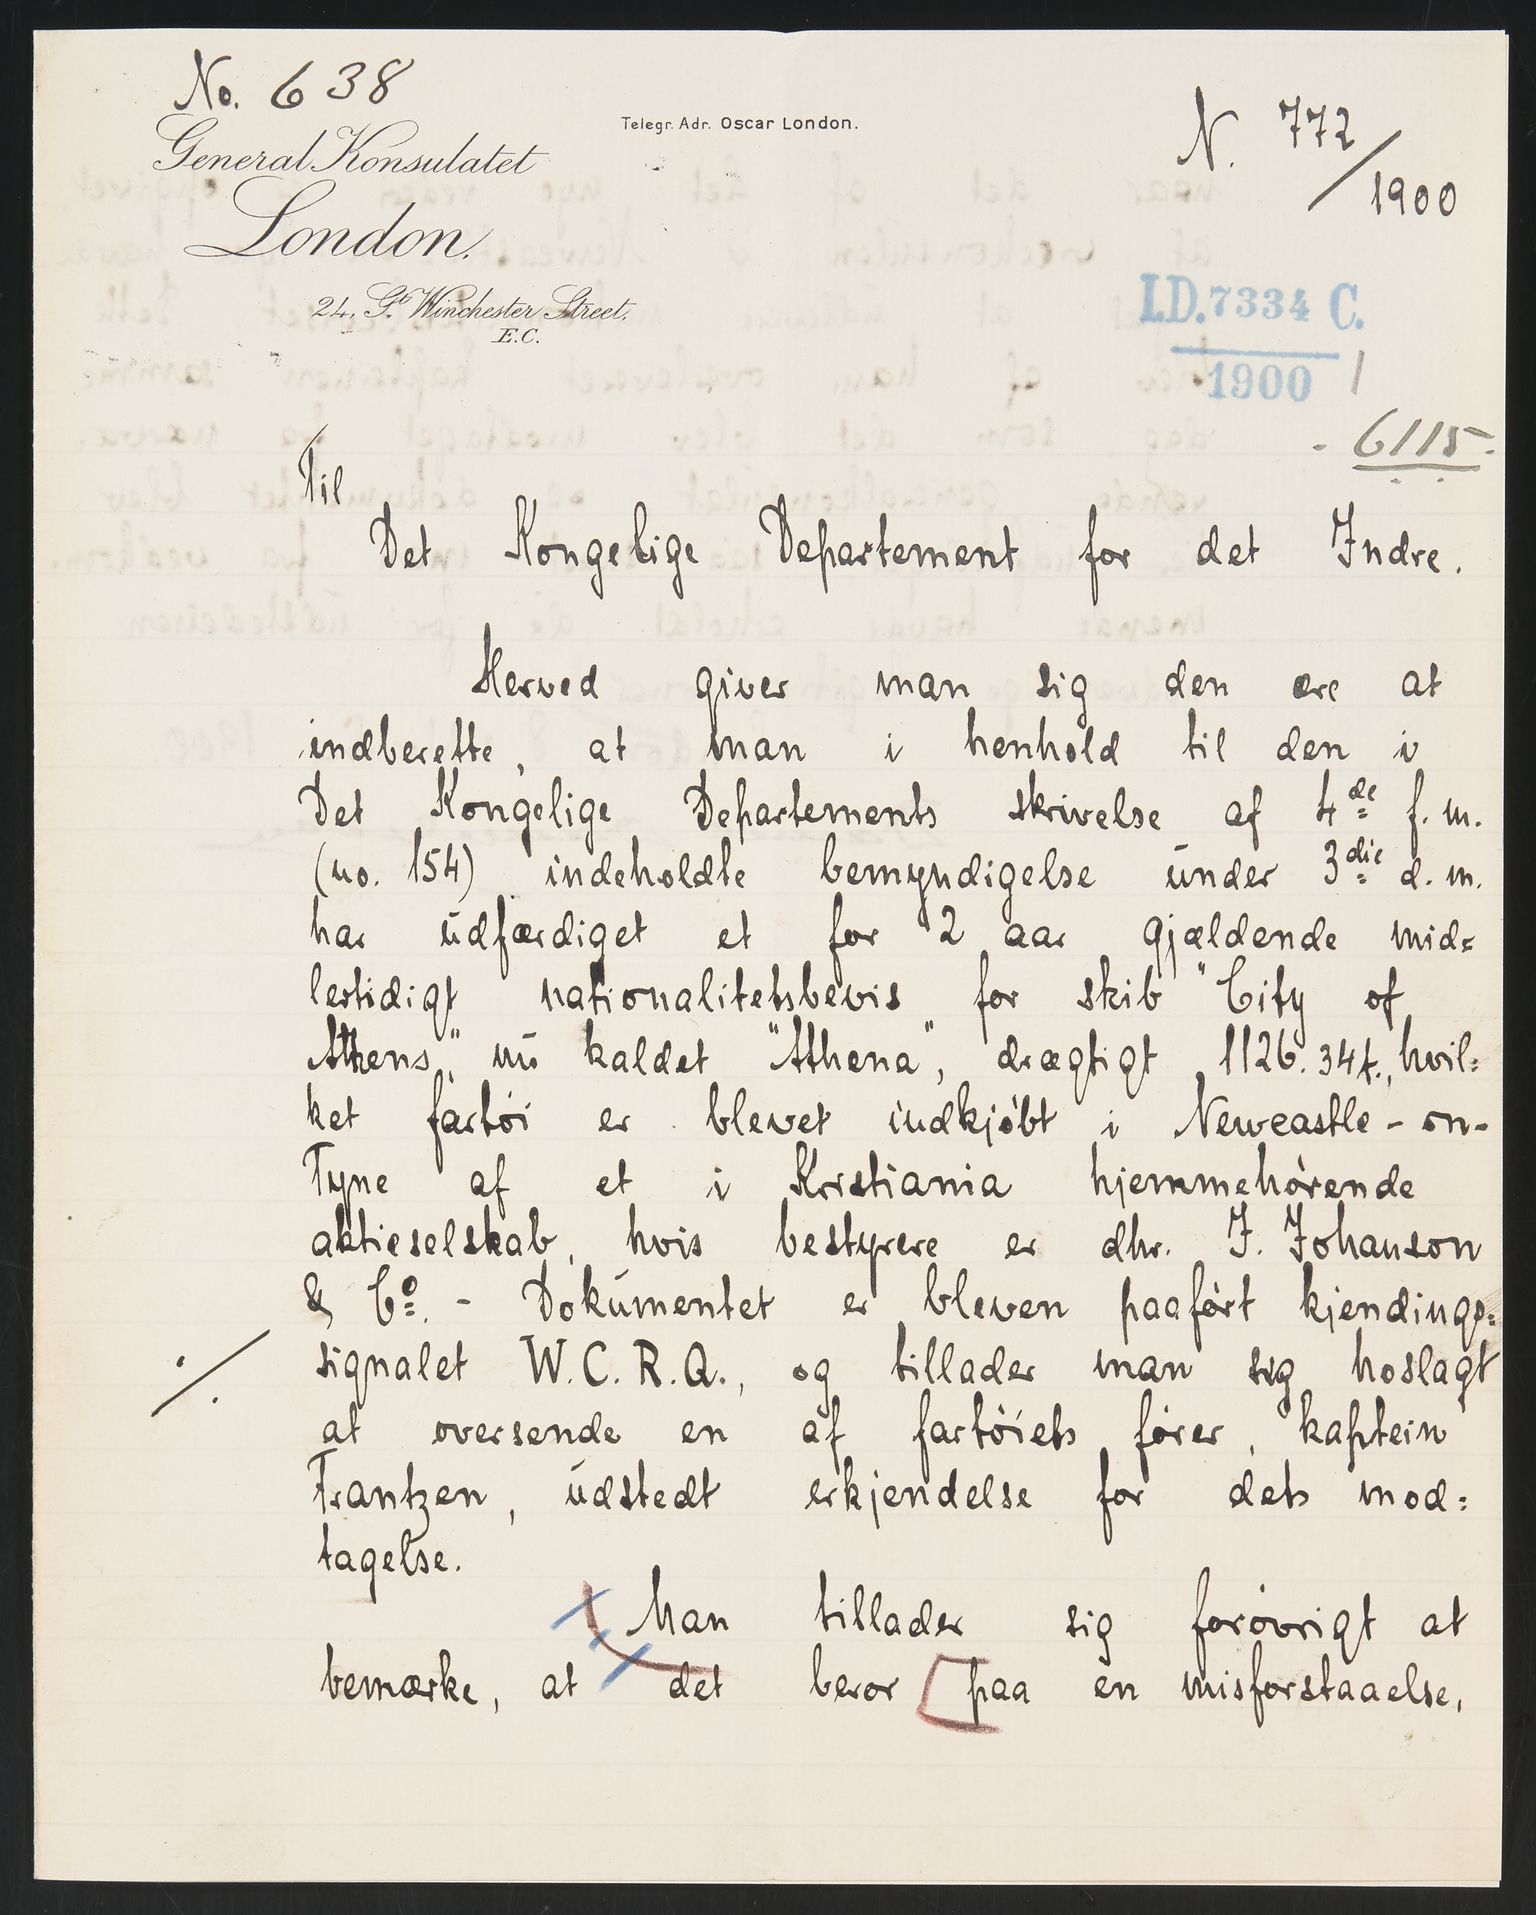 No. 638
Telegr. Adr. Oscar London.
N. 772/1900
General Konsulatet
London.
24, Gt Winchester Street.
E.C.
I.D. 7334 C.
1900
- 6115.
Til
Det Kongelige Departement for det Indre.
Herved giver man sig den ære at
indberette, at man i henhold til den i
Det Kongelige Departements skrivelse af 4de f. m.
(no. 154) indeholdte bemyndigelse under 3die d. m.
har udfærdiget et for 2 aar gjældende mid=
lertidigt nationalitetsbevis for skib "City of
Athens," nu kaldet "Athena", drægtigt 1126.34 t., hvil=
ket fartöi er blevet indkjöbt i Newcastle-on-
Tyne af et i Kristiania hjemmehörende
aktieselskab, hvis bestyrere er dhr. J. Johanson
& Co. - Dokumentet er bleven paafört kjendings=
signalet W.C.R.Q., og tillader man sig hoslagt
at oversende en af fartöiets förer, kaptein
Frantzen, udstedt erkjendelse for dets mod=
tagelse.
Man tillader sig forövrigt at
bemærke, at det beror paa en misforstaaelse,